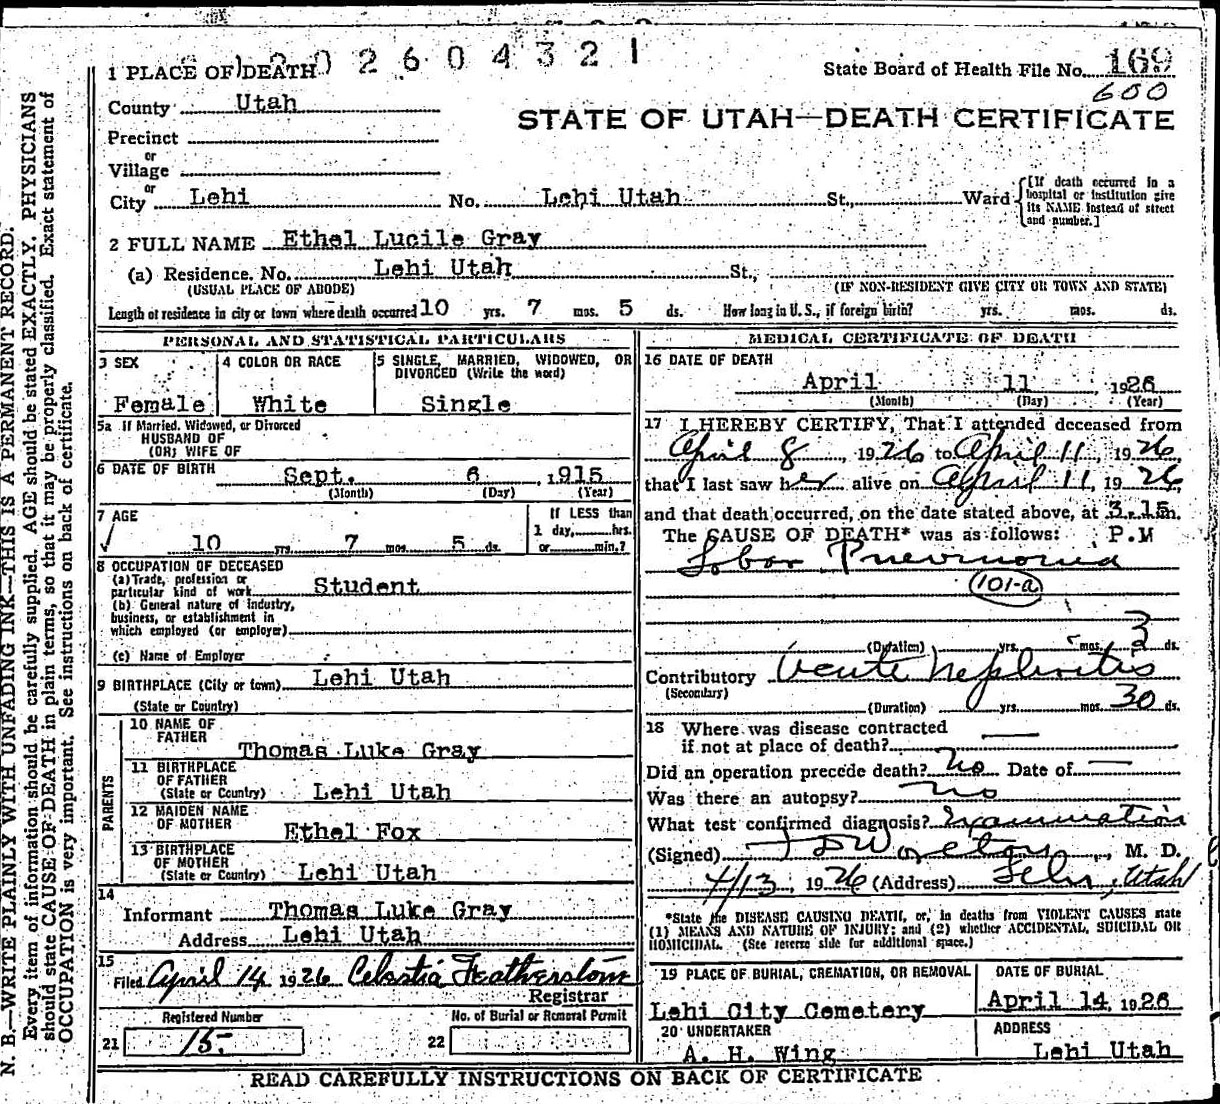 N. B.—WRITE PLAINLY WITH UNFADING INK—THIS IS A PERMANENT RECORD.
Every item of information should be carefully supplied. AGE should be stated EXACTLY. PHYSICIANS
should state CAUSE OF DEATH in plain terms, so that it may be properly classified. Exact statement of
OCCUPATION is very important. See instructions on back of certificate.
2604321
1 PLACE OF DEATH
State Board of Health File No. 169
600
County Utah
STATE OF UTAH—DEATH CERTIFICATE
Precinct
or
Village
or
City Lehi No. Lehi Utah St., Ward
[If death occurred in a
hospital or institution give
its NAME instead of street
and number.]
2 FULL NAME Ethel Lucile Gray
(a) Residence. No. Lehi Utah St.,
(USUAL PLACE OF ABODE) (IF NON-RESIDENT GIVE CITY OR TOWN AND STATE)
Length of residence in city or town where death occurred 10 yrs. 7 mos. 5 ds. How long in U. S., if foreign birth? yrs. mos. ds.
PERSONAL AND STATISTICAL PARTICULARS
3 SEX
Female
4 COLOR OR RACE
White
5 SINGLE, MARRIED, WIDOWED, OR
DIVORCED (Write the word)
Single
5a If Married, Widowed, or Divorced
HUSBAND OF
(OR) WIFE OF
6 DATE OF BIRTH Sept. 6 1915
(Month) (Day) (Year)
7 AGE
10 yrs. 7 mos. 5 ds.
If LESS than
1 day, hrs.
or min.?
8 OCCUPATION OF DECEASED
(a) Trade, profession or
particular kind of work Student
(b) General nature of industry,
business, or establishment in
which employed (or employer)
(c) Name of Employer
9 BIRTHPLACE (City or town) Lehi Utah
(State or Country)
PARENTS
10 NAME OF
FATHER
Thomas Luke Gray
11 BIRTHPLACE
OF FATHER
(State or Country) Lehi Utah
12 MAIDEN NAME
OF MOTHER
Ethel Fox
13 BIRTHPLACE
OF MOTHER
(State or Country) Lehi Utah
14
Informant Thomas Luke Gray
Address Lehi Utah
15
Filed April 14 1926 Celestia Featherstone
Registrar
Registered Number
21 15
No. of Burial or Removal Permit
22
MEDICAL CERTIFICATE OF DEATH
16 DATE OF DEATH
April 11 1926
(Month) (Day) (Year)
17 I HEREBY CERTIFY, That I attended deceased from
April 8, 1926 to April 11, 1926,
that I last saw her alive on April 11, 1926,
and that death occurred, on the date stated above, at 3.15 m.
The CAUSE OF DEATH* was as follows: P.M
Lobar Pneumonia
101-a
(Duration) yrs. mos. 3 ds.
Contributory Acute Nephritis
(Secondary)
(Duration) yrs. mos. 30 ds.
18 Where was disease contracted
if not at place of death? —
Did an operation precede death? No Date of —
Was there an autopsy? no
What test confirmed diagnosis? Examination
(Signed) , M. D.
4/13, 1926 (Address) Lehi, Utah
*State the DISEASE CAUSING DEATH, or, in deaths from VIOLENT CAUSES state
(1) MEANS AND NATURE OF INJURY; and (2) whether ACCIDENTAL, SUICIDAL OR
HOMICIDAL. (See reverse side for additional space.)
19 PLACE OF BURIAL, CREMATION, OR REMOVAL
Lehi City Cemetery
DATE OF BURIAL
April 14, 1926
20 UNDERTAKER
A. H. Wing
ADDRESS
Lehi Utah
READ CAREFULLY INSTRUCTIONS ON BACK OF CERTIFICATE